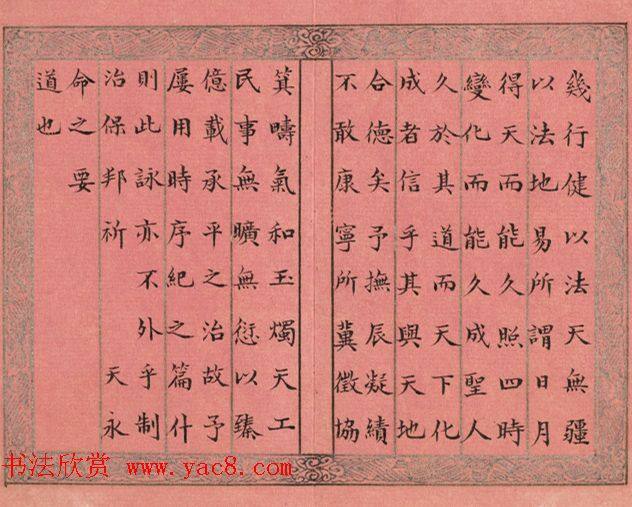 幾行健以法天無疆
以法地易所謂日月
得天而能久照四時
變化而能久成聖人
久於其道而天下化
成者信乎其與天地
合德矣予撫辰凝績
不敢康寧所冀徵協
箕疇氣和玉燭天工
民事無曠無愆以臻
億載承平之治故予
屢用時序紀之篇什
則此詠亦不外乎制
治保邦祈天永
命之要
道也
书法欣赏 www.yac8.com